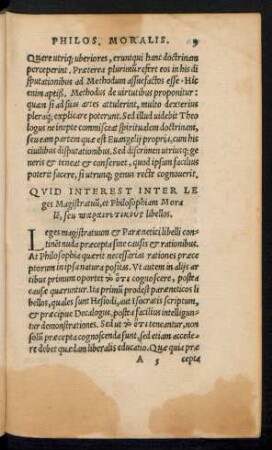 PHILOS. MORALIS. 9
Quare utriq; uberiores, eruntqui hanc doctrinam
perceperint. Præterea plurimũ refert eos in his di
sputationibus ad Methodum assuefactos esse. Hic
enim aptiß. Methodus de uirtutibus proponitur:
quam si ad suas artes attulerint, multo dexterius
pleraq; explicare poterunt. Sed illud uidebit Theo
logus ne inepte commisceat spiritualem doctrinam,
seu eam partem quæ est Euangelij propria, cum his
ciuilibus disputationibus. Sed discrimen utriusq; ge
neris & teneat & conseruet, quod ipsum facilius
poterit facere, si utrunq; genus recte cognouerit.
QVID INTEREST INTER LE
ges Magistratuũ, et Philosophiam Mora
lẽ, seu παραινετικους libellos.
Leges magistratuum & Parænetici libelli con
tinẽt nuda præcepta sine causis & rationibus.
At Philosophia quærit necessarias rationes præce
ptorum in ipsa natura positas. Vt autem in alijs ar
tibus primum oportet τὸ ὅτι cognoscere, postea
causæ quæruntur. Ita primũ prodest paræneticos li
bellos, quales sunt Hesiodi, aut Isocratis scriptum,
& præcipue Decalogus, postea facilius intelligun
tur demonstrationes. Sed ut τὸ ὅτι teneantur, non
solũ præcepta cognoscenda sunt, sed etiam accede
re debet quædam liberalis educatio. Quæ quia præ
A 5 cepta